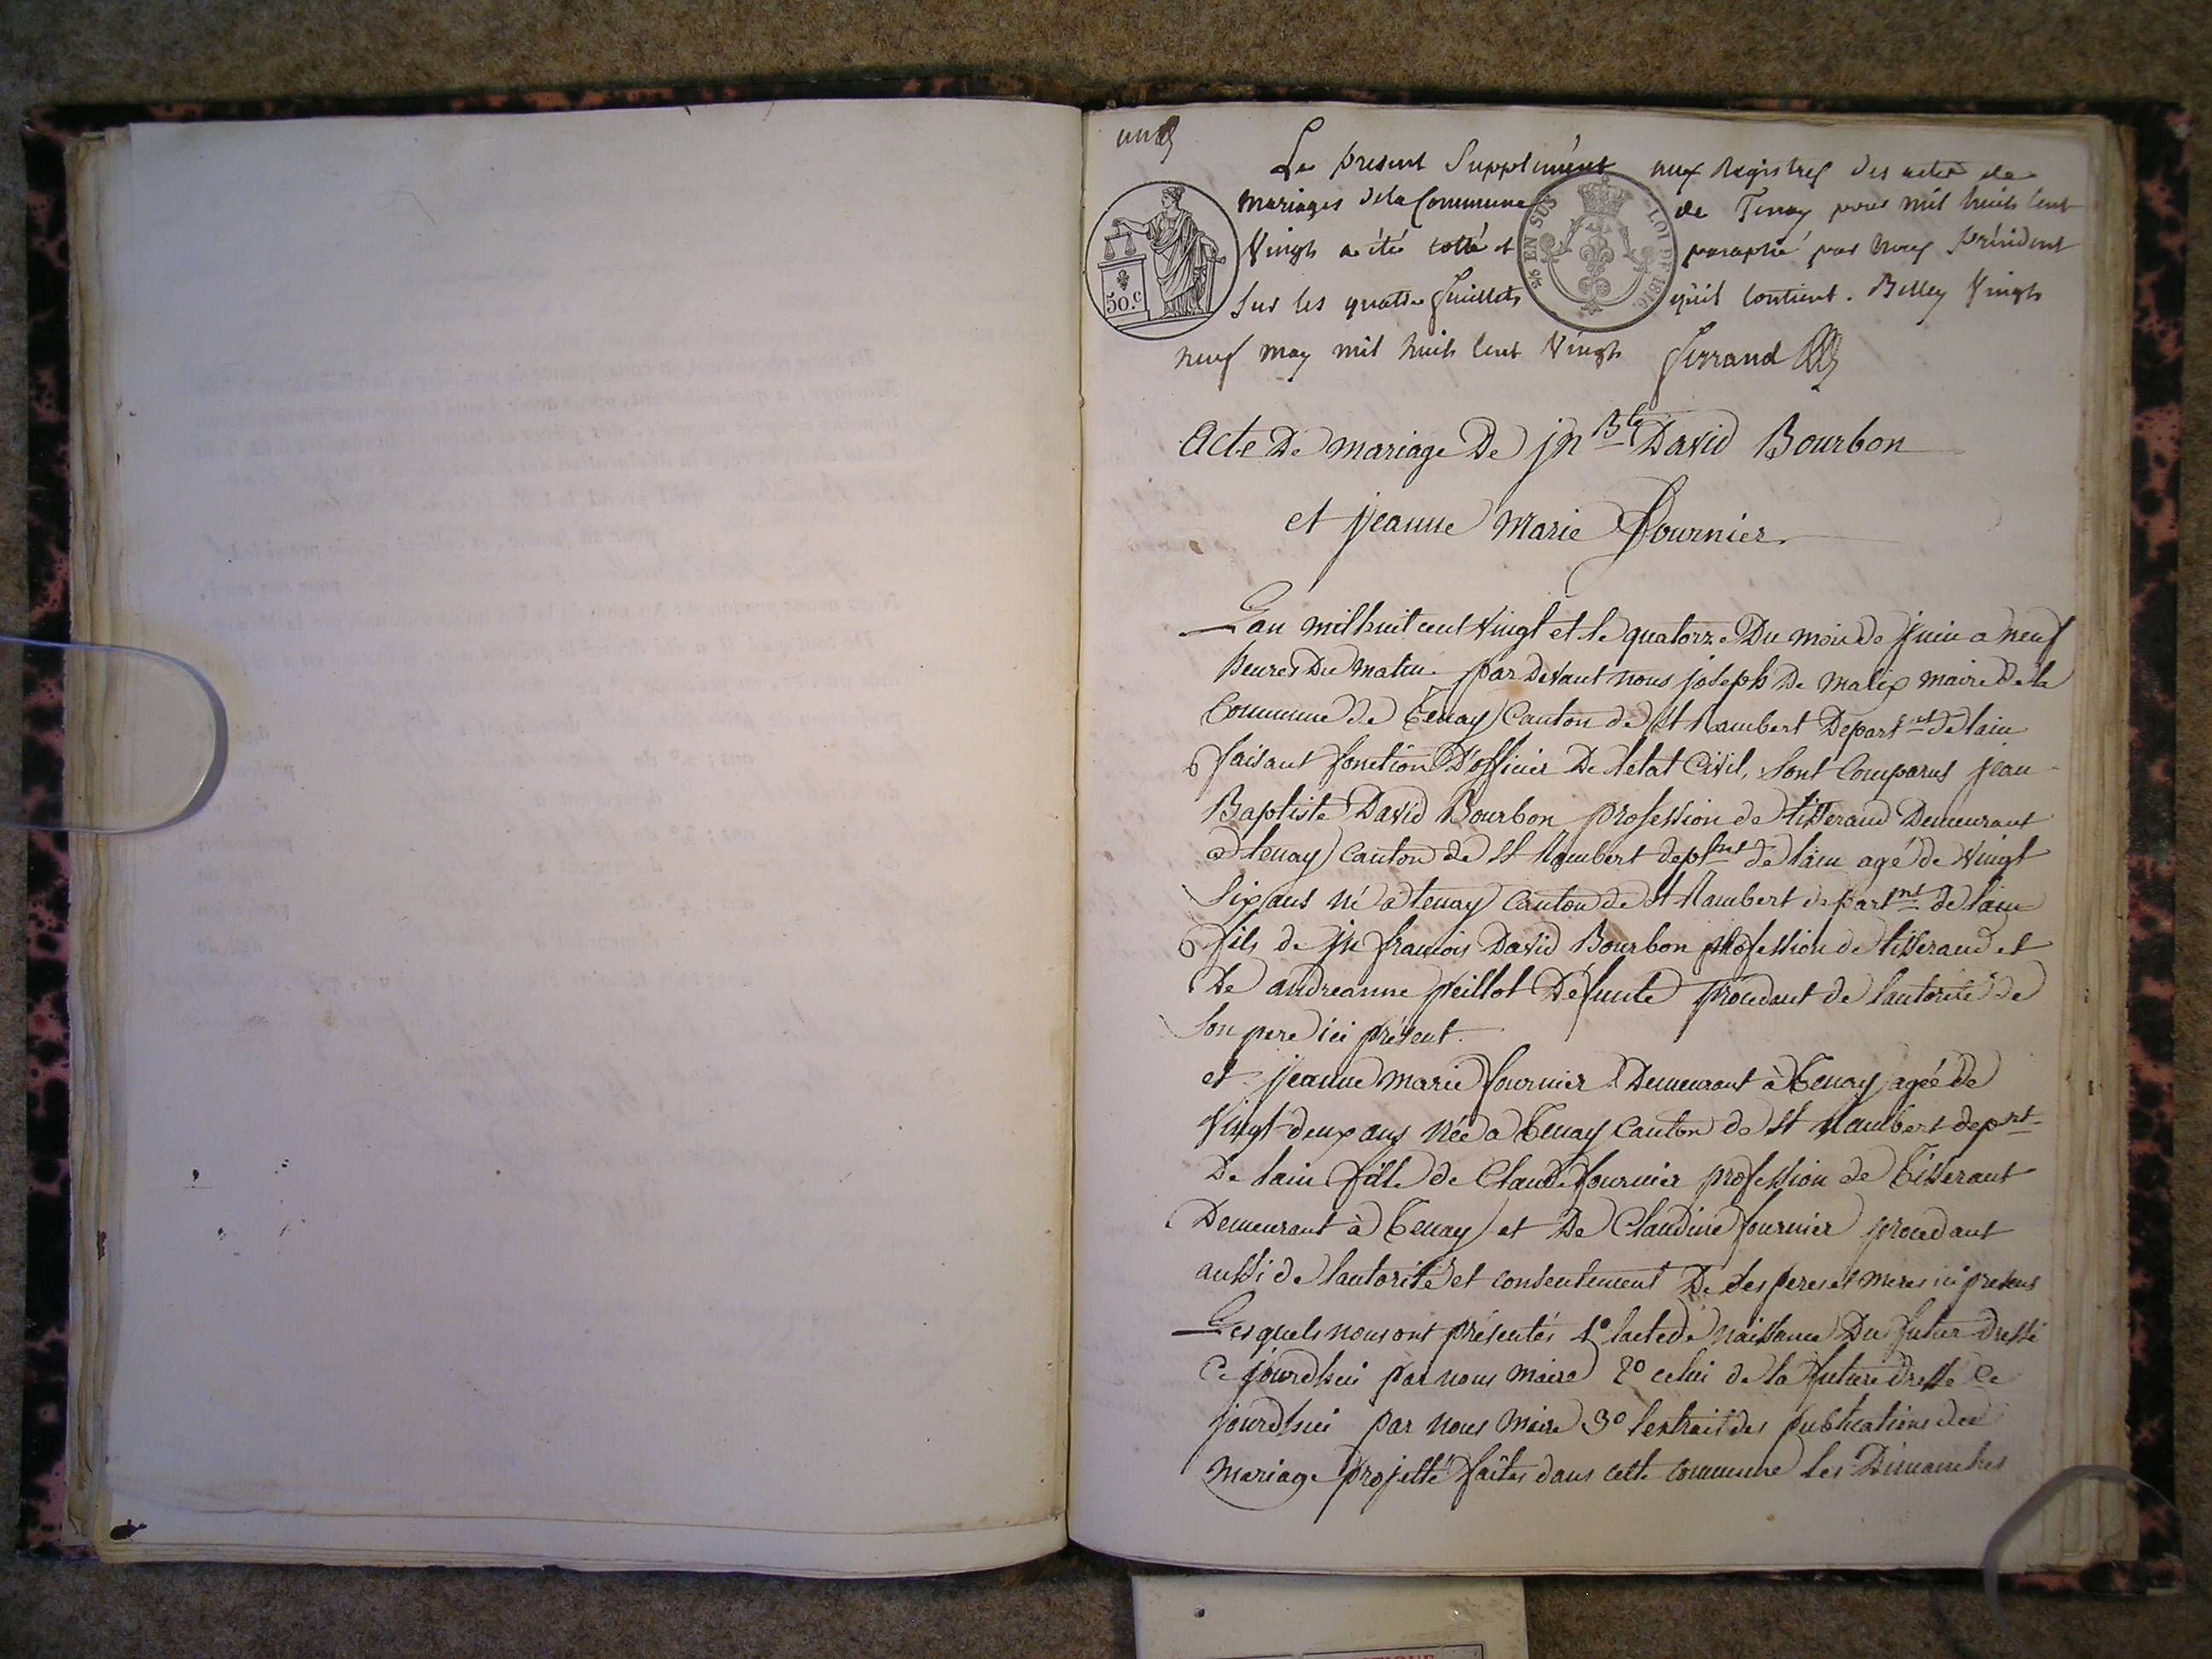 Le present Supplément aux Registres des actes de
mariages dela Commune de Tenay pour mil huit Cent
Vingt a été cotté et paraphé par Nous Président
Sur les quatre feuillets qu'il Contient. Belley Vingt
neuf may mil huit Cent Vingt Ferrand
50.c
EN SUS
LOI DE 1816
Acte De mariage De jn Bte David Bourbon
et jeanne Marie Fournier.
Lan mil huit cent Vingt et le quatorze Du mois de juin a neuf
heures Du matin par Devant nous joseph De Malix maire De la
Commune de Tenay Canton de St Rambert Depart.nt de lain
faisant fonction D'officier De letat Civil, Sont Comparus jean
Baptiste David Bourbon profession de tisserand Demeurant
a tenay Canton de St Rambert dept.mt de lain agé de Vingt
Six ans né a tenay Canton de St Rambert depart.mt de lain
fils de jn francois David Bourbon profession de tisserand et
De andreanne peillot Défunte procedant de lautorité de
Son pere ici présent.
et jeanne marie fournier Demeurant à Tenay agée de
Vingt-deux ans Née a Tenay Canton de St Rambert dep.nt
De lain fille de Claude fournier profession de Tisserant
Demeurant à Tenay et De Claudine fournier procedant
aussi de lautorité et consentement De ses peres et meres ici presens
Lesquels nous ont présentés 1o lacte de Naissance Du futur dressé
Ce jourdhui par nous maire 2o celui de la future dressé Ce
jourdhui par nous Maire 3o lextrait des publications de
Mariage projetté faites dans cette commune les Dimanches